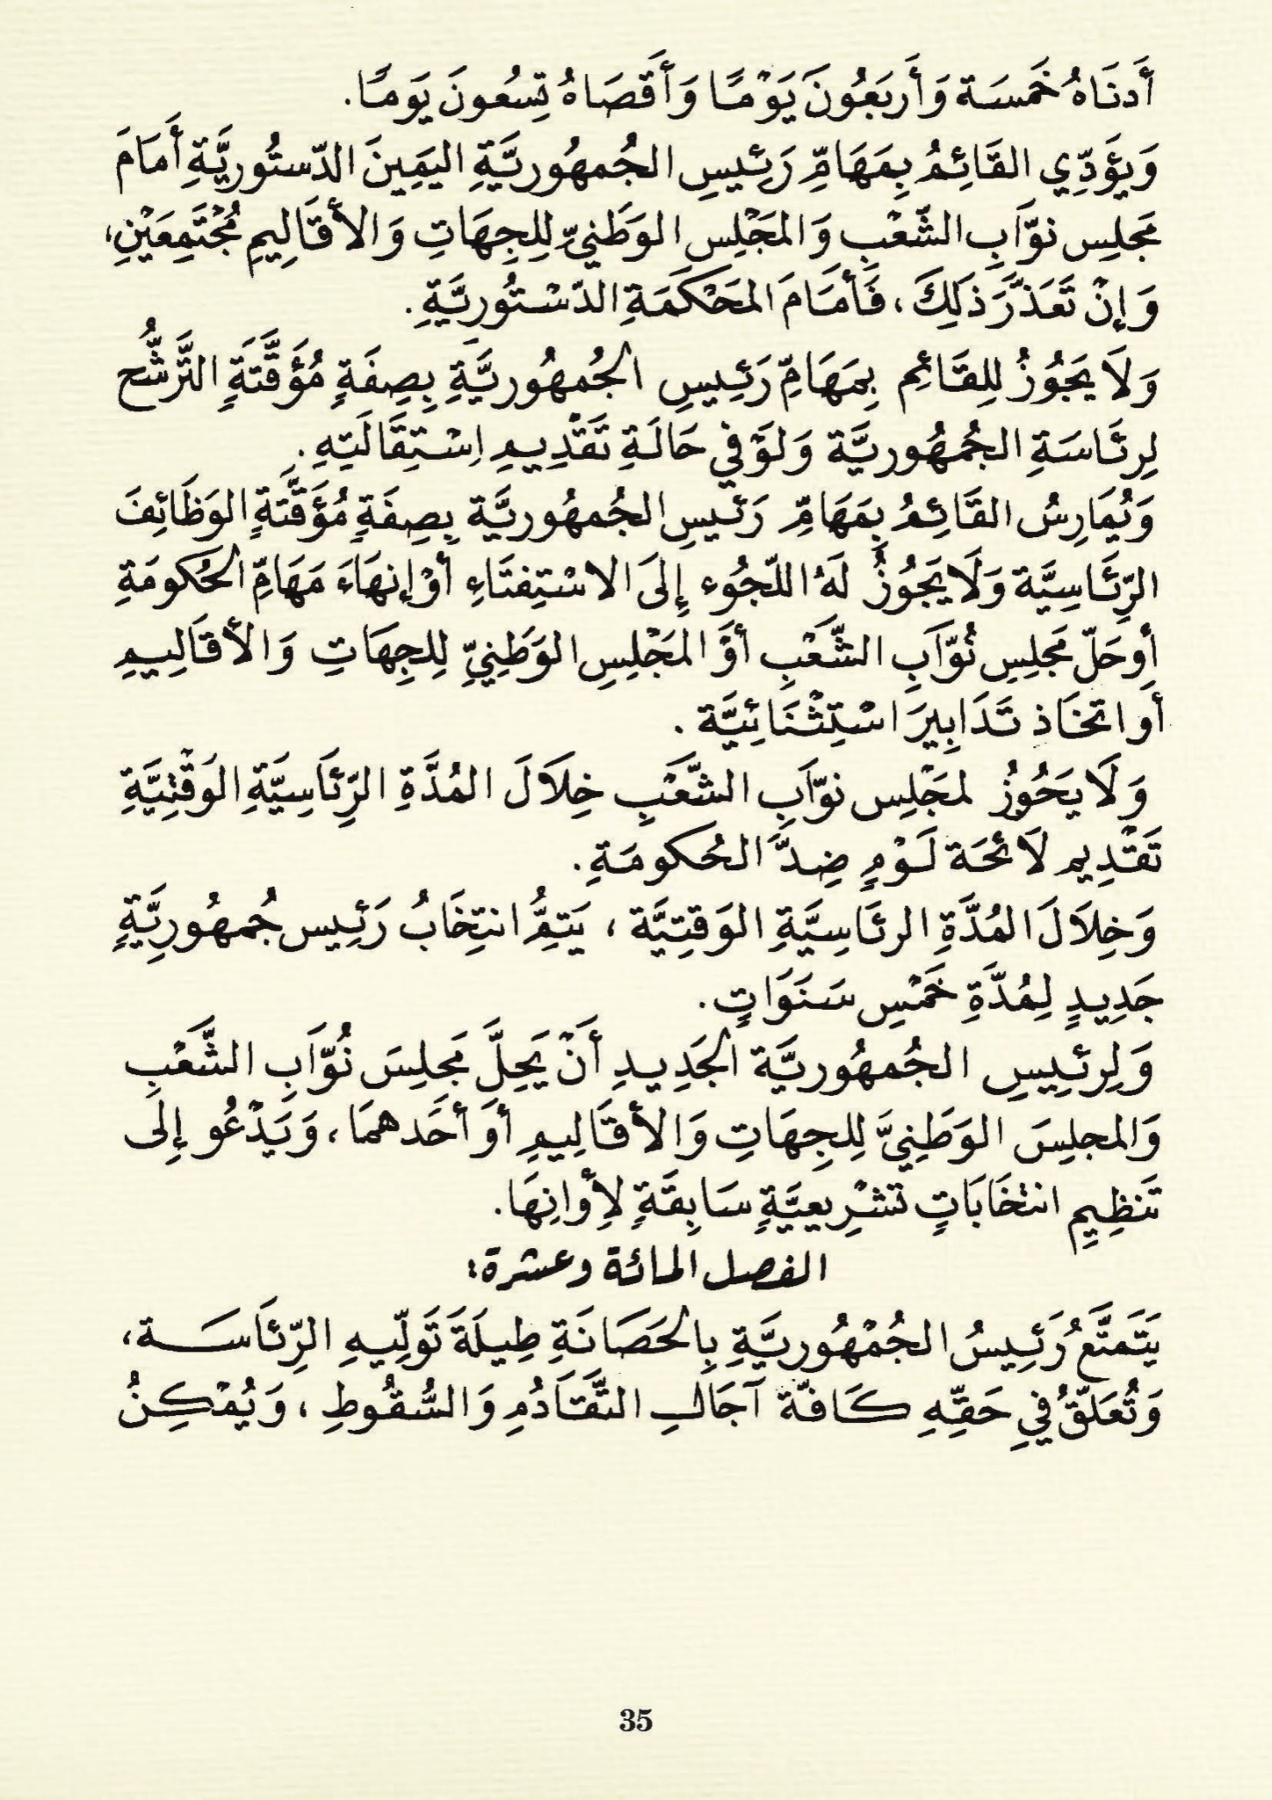 أَدنَاهُ خَمسَة وَأَربَعُونَ يَوْمًا وَأَقصَاهُ تِسعُونَ يَومًا.
وَيؤَدِّي القَائِمُ بِمَهَامِّ رَئِيسِ الجُمهُوريَّةِ اليَمِينَ الدّستُوريَّةِ أَمَامَ
مَجلِس نوَّابِ الشَّعْبِ وَالمَجْلِسِ الوَطَنيِّ لِلجِهَاتِ وَالأقَالِيمِ مُجْتَمِعَيْنِ،
وَإنْ تَعَذَّرَ ذلِكَ، فَأمَامَ المَحْكَمَةِ الدّسْتُوريَّةِ.
وَلَا يَجُوزُ لِلقَائِمِ بِمَهَامِّ رَئِيسِ الجُمهُوريَّةِ بِصِفَةٍ مُؤَقَّتَةٍ التَّرَشُّح
لِرِئَاسَةِ الجُمهُوريَّة وَلَوْ في حَالَةِ تَقْدِيمِ اِسْتِقَالَتِهِ.
وَيُمَارِسُ القَائِمُ بِمَهَامِّ رَئيسِ الجُمهُوريَّة بِصِفَةٍ مُؤَقَّتَةٍ الوَظَائِفَ
الرِّئَاسِيَّة وَلَا يَجُوزُ لَهُ اللّجُوء إِلَى الاسْتِفتَاءِ أوْ إنهَاءَ مَهَامِّ الحُكومَةِ
أوحَلّ مَجلِسِ نُوَّابِ الشَّعْبِ أوْ المَجْلِسِ الوَطَنِيِّ لِلجِهَاتِ وَالأقَالِيمِ
أو اتخَاذ تَدَابِيرَ اسْتِثْنَائِيَّة.
وَلَا يَجُوزُ لمَجْلِس نوَّابِ الشَّعْبِ خِلَالَ المُدَّةِ الرِّئَاسِيَّةِ الوَقْتِيَّةِ
تَقْدِيم لَائحَة لَوْمٍ ضِدَّ الحُكومَةِ.
وَخِلَالَ المُدَّةِ الرئَاسِيَّةِ الوَقتِيَّة، يَتِمُّ انتِخَابُ رَئِيس جُمهُوريَّةٍ
جَدِيدٍ لِمُدَّةِ خَمْسِ سَنَوَاتٍ.
وَلِرئِيسِ الجُمهُوريَّة الجَدِيدِ أَنْ يَحِلَّ مَجلِسَ نُوَّابِ الشَّعْبِ
وَالمجلِسَ الوَطَنِيَّ لِلجِهَاتِ وَالأقَالِيمِ أوَ أحَدهمَا، وَيَدْعُو إلَى
تَنظِيمِ انتخَابَاتٍ تشْرِيعيَّةٍ سَابِقَةٍ لِأوانِهَا.
الفصل المائة وعشرة:
يَتَمَتَّعُ رَئِيسُ الجُمْهُوريَّةِ بِالحَصَانَةِ طِيلَةَ تَولِّيهِ الرِّئاسَة،
وَتُعَلَّقُ فِي حَقِّهِ كَافّة آجَالِ التَّقَادُمِ وَالسُّقُوطِ، وَيُمْكِنُ
35